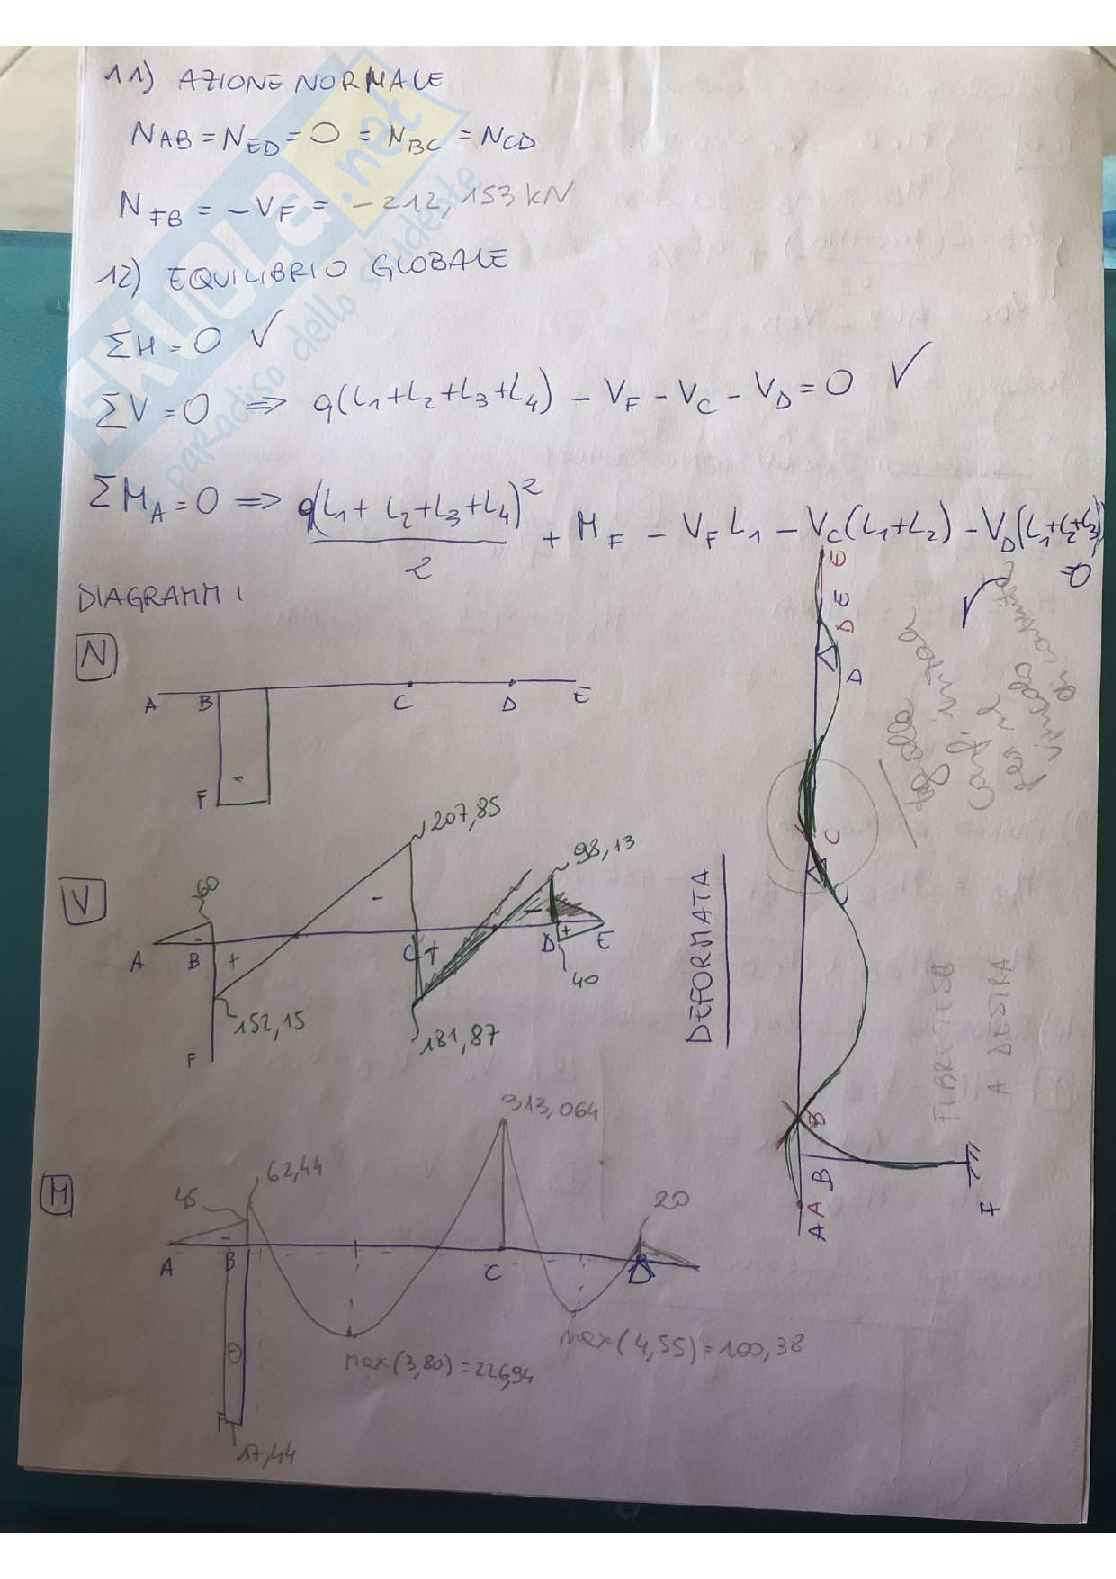 11) AZIONE NORMALE
NAB = NED = 0 = NBC = NCD
NFB = -VF = -212,153 kN
12) EQUILIBRIO GLOBALE
ΣH = 0 ✓
ΣV = 0 => q(L1+L2+L3+L4) - VF - VC - VD = 0 ✓
ΣMA = 0 => q(L1+L2+L3+L4)²/2 + MF - VF L1 - VC(L1+L2) - VD(L1+L2+L3) = 0 ✓
DIAGRAMMI
N
A B C D E
-
F
V
60
207,85
98,13
- - -
A B C D E
+ + +
152,15
181,87
40
F
M
45
62,44
313,064
20
-
A B C D
max(3,80) = 226,94
max(4,55) = 100,38
F
17,44
DEFORMATA
E E
D D
C C
B B
A A
F
FIBRE TESE
A DESTRA
SKUOLA.net
paradiso dello studente